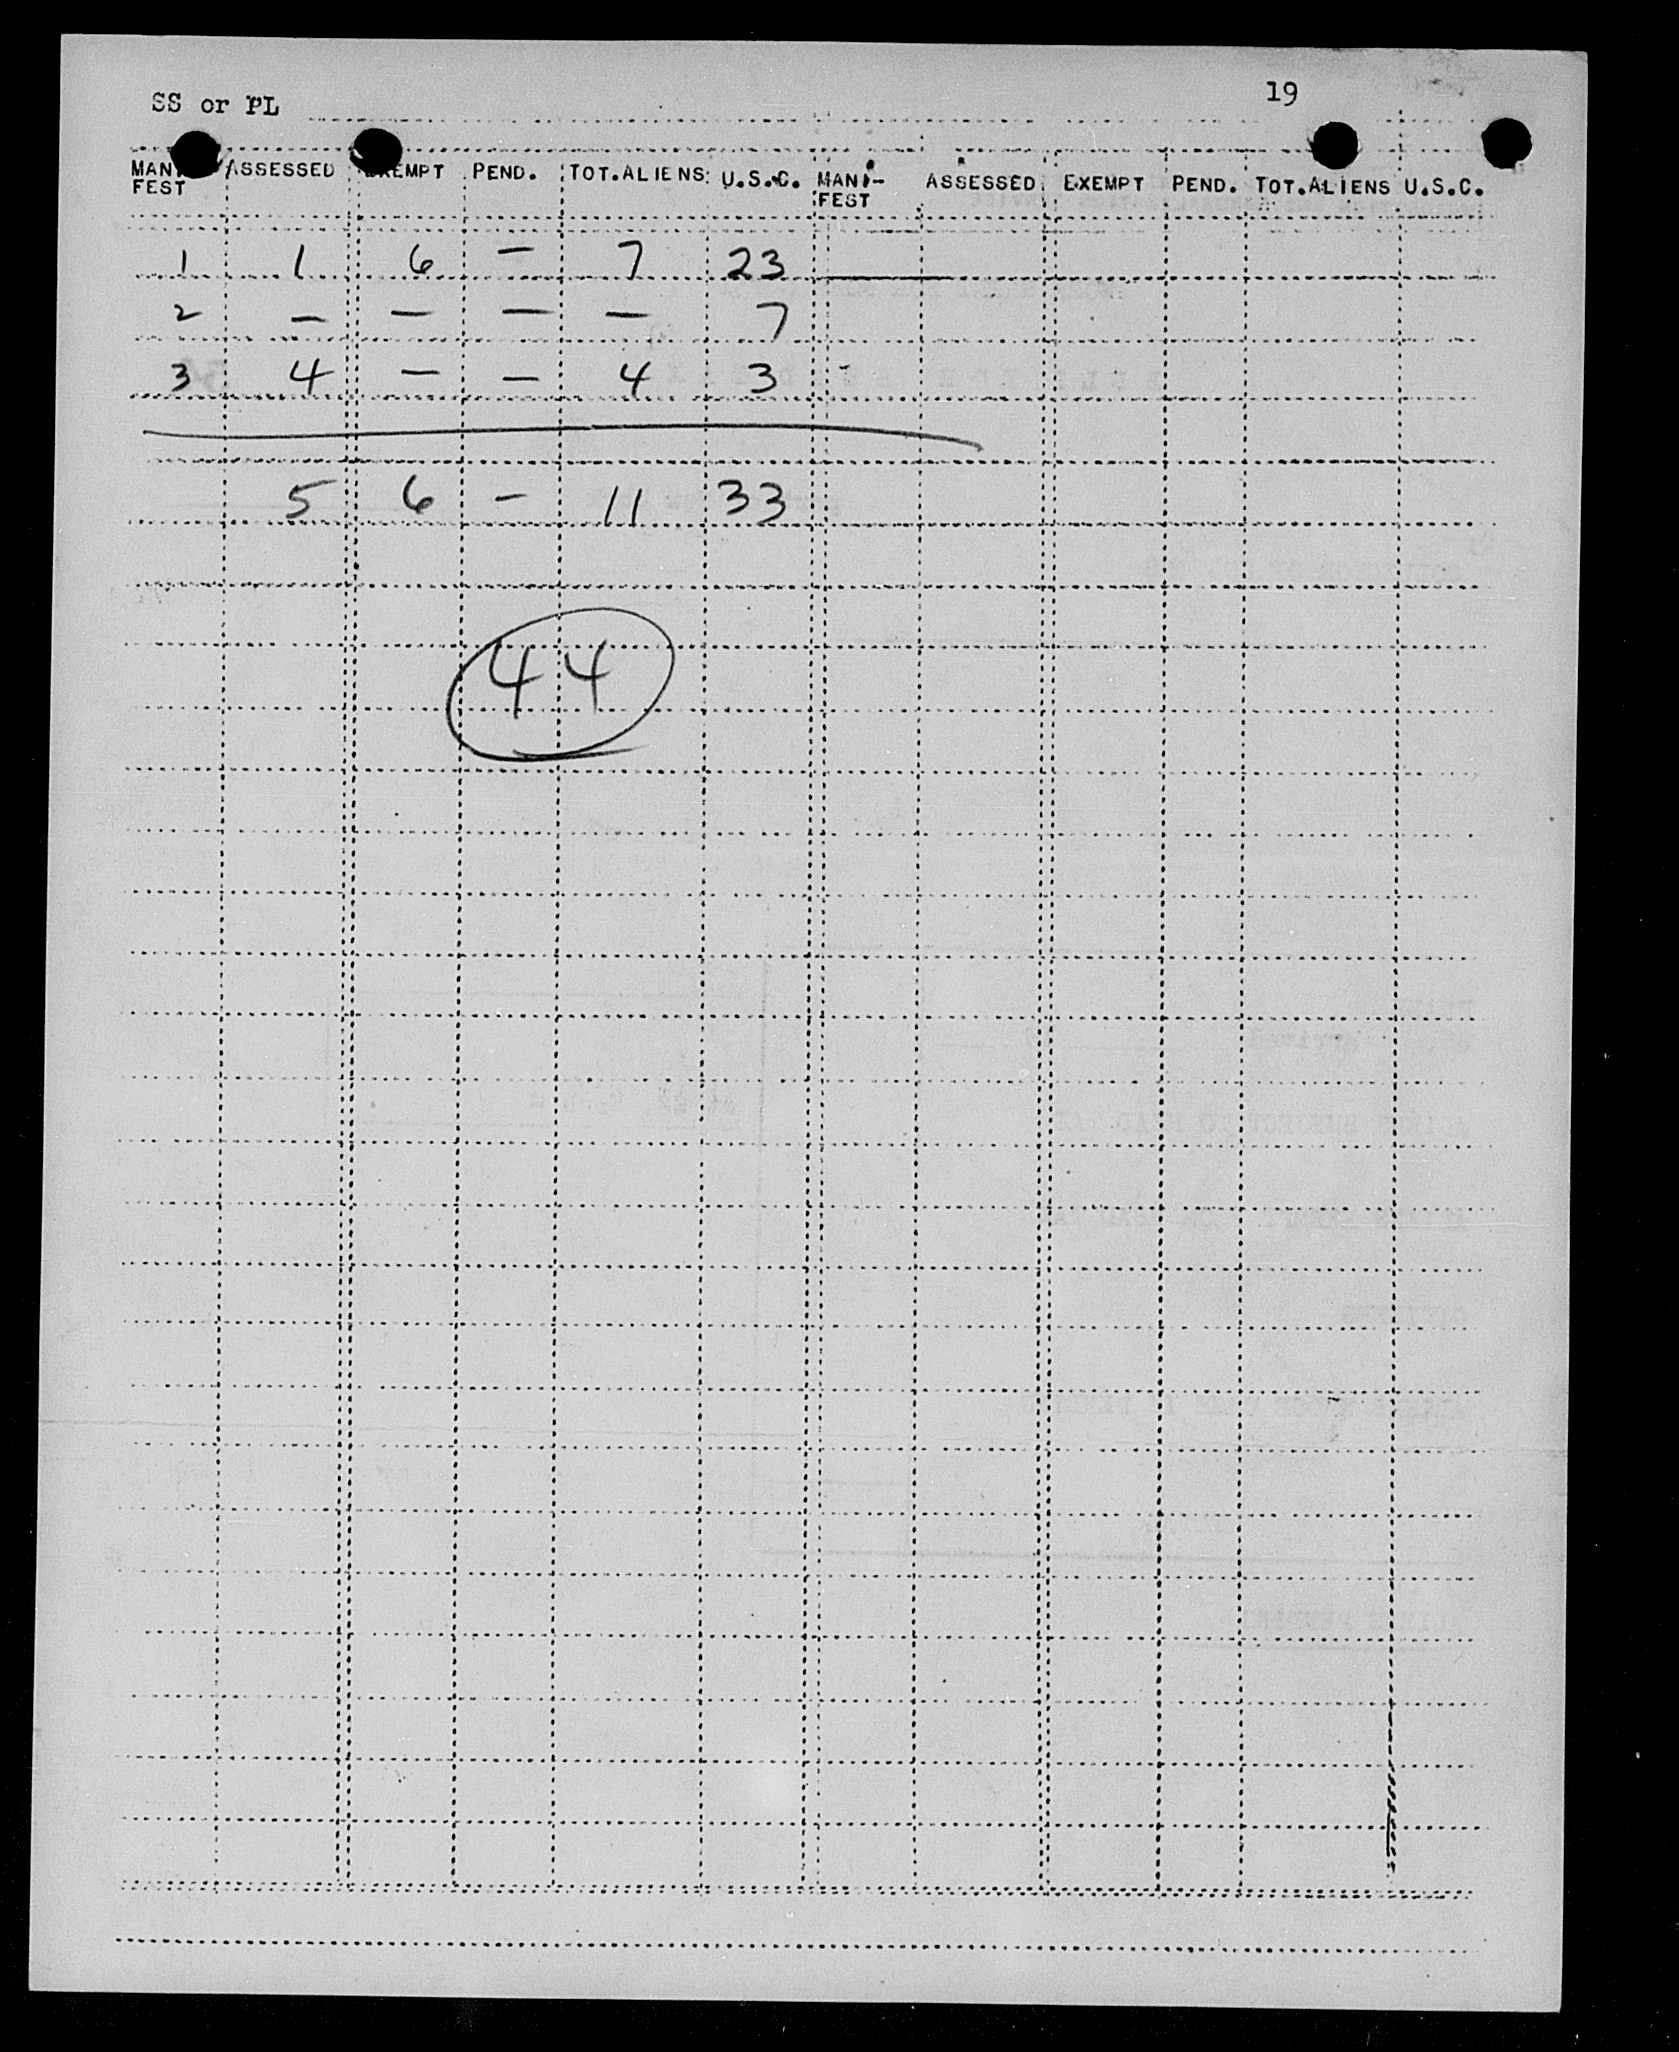 SS or PL 19
MANI- FEST ASSESSED EXEMPT PEND. TOT.ALIENS U.S.C. MANI- FEST ASSESSED EXEMPT PEND. TOT.ALIENS U.S.C.
1 1 6 — 7 23
2 — — — — 7
3 4 — — 4 3
5 6 - 11 33
44